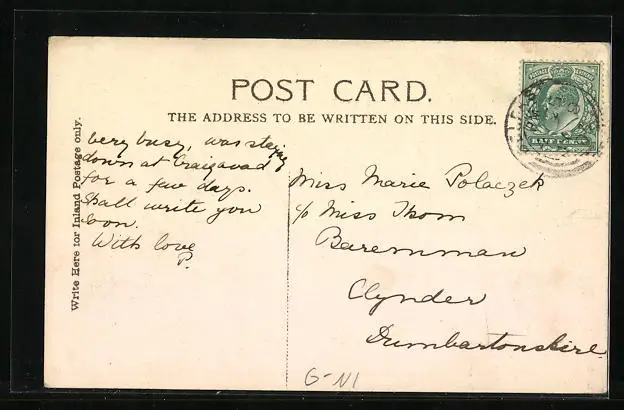 POST CARD.
THE ADDRESS TO BE WRITTEN ON THIS SIDE.
Write Here for Inland Postage only.
very busy, was staying
down at Craigavad
for a few days.
Shall write you
soon.
With love
P.
Miss Marie Polaczek
c/o Miss Thom
Baremman
Clynder
Dumbartonshire
POSTAGE & REVENUE
HALFPENNY
G-NI